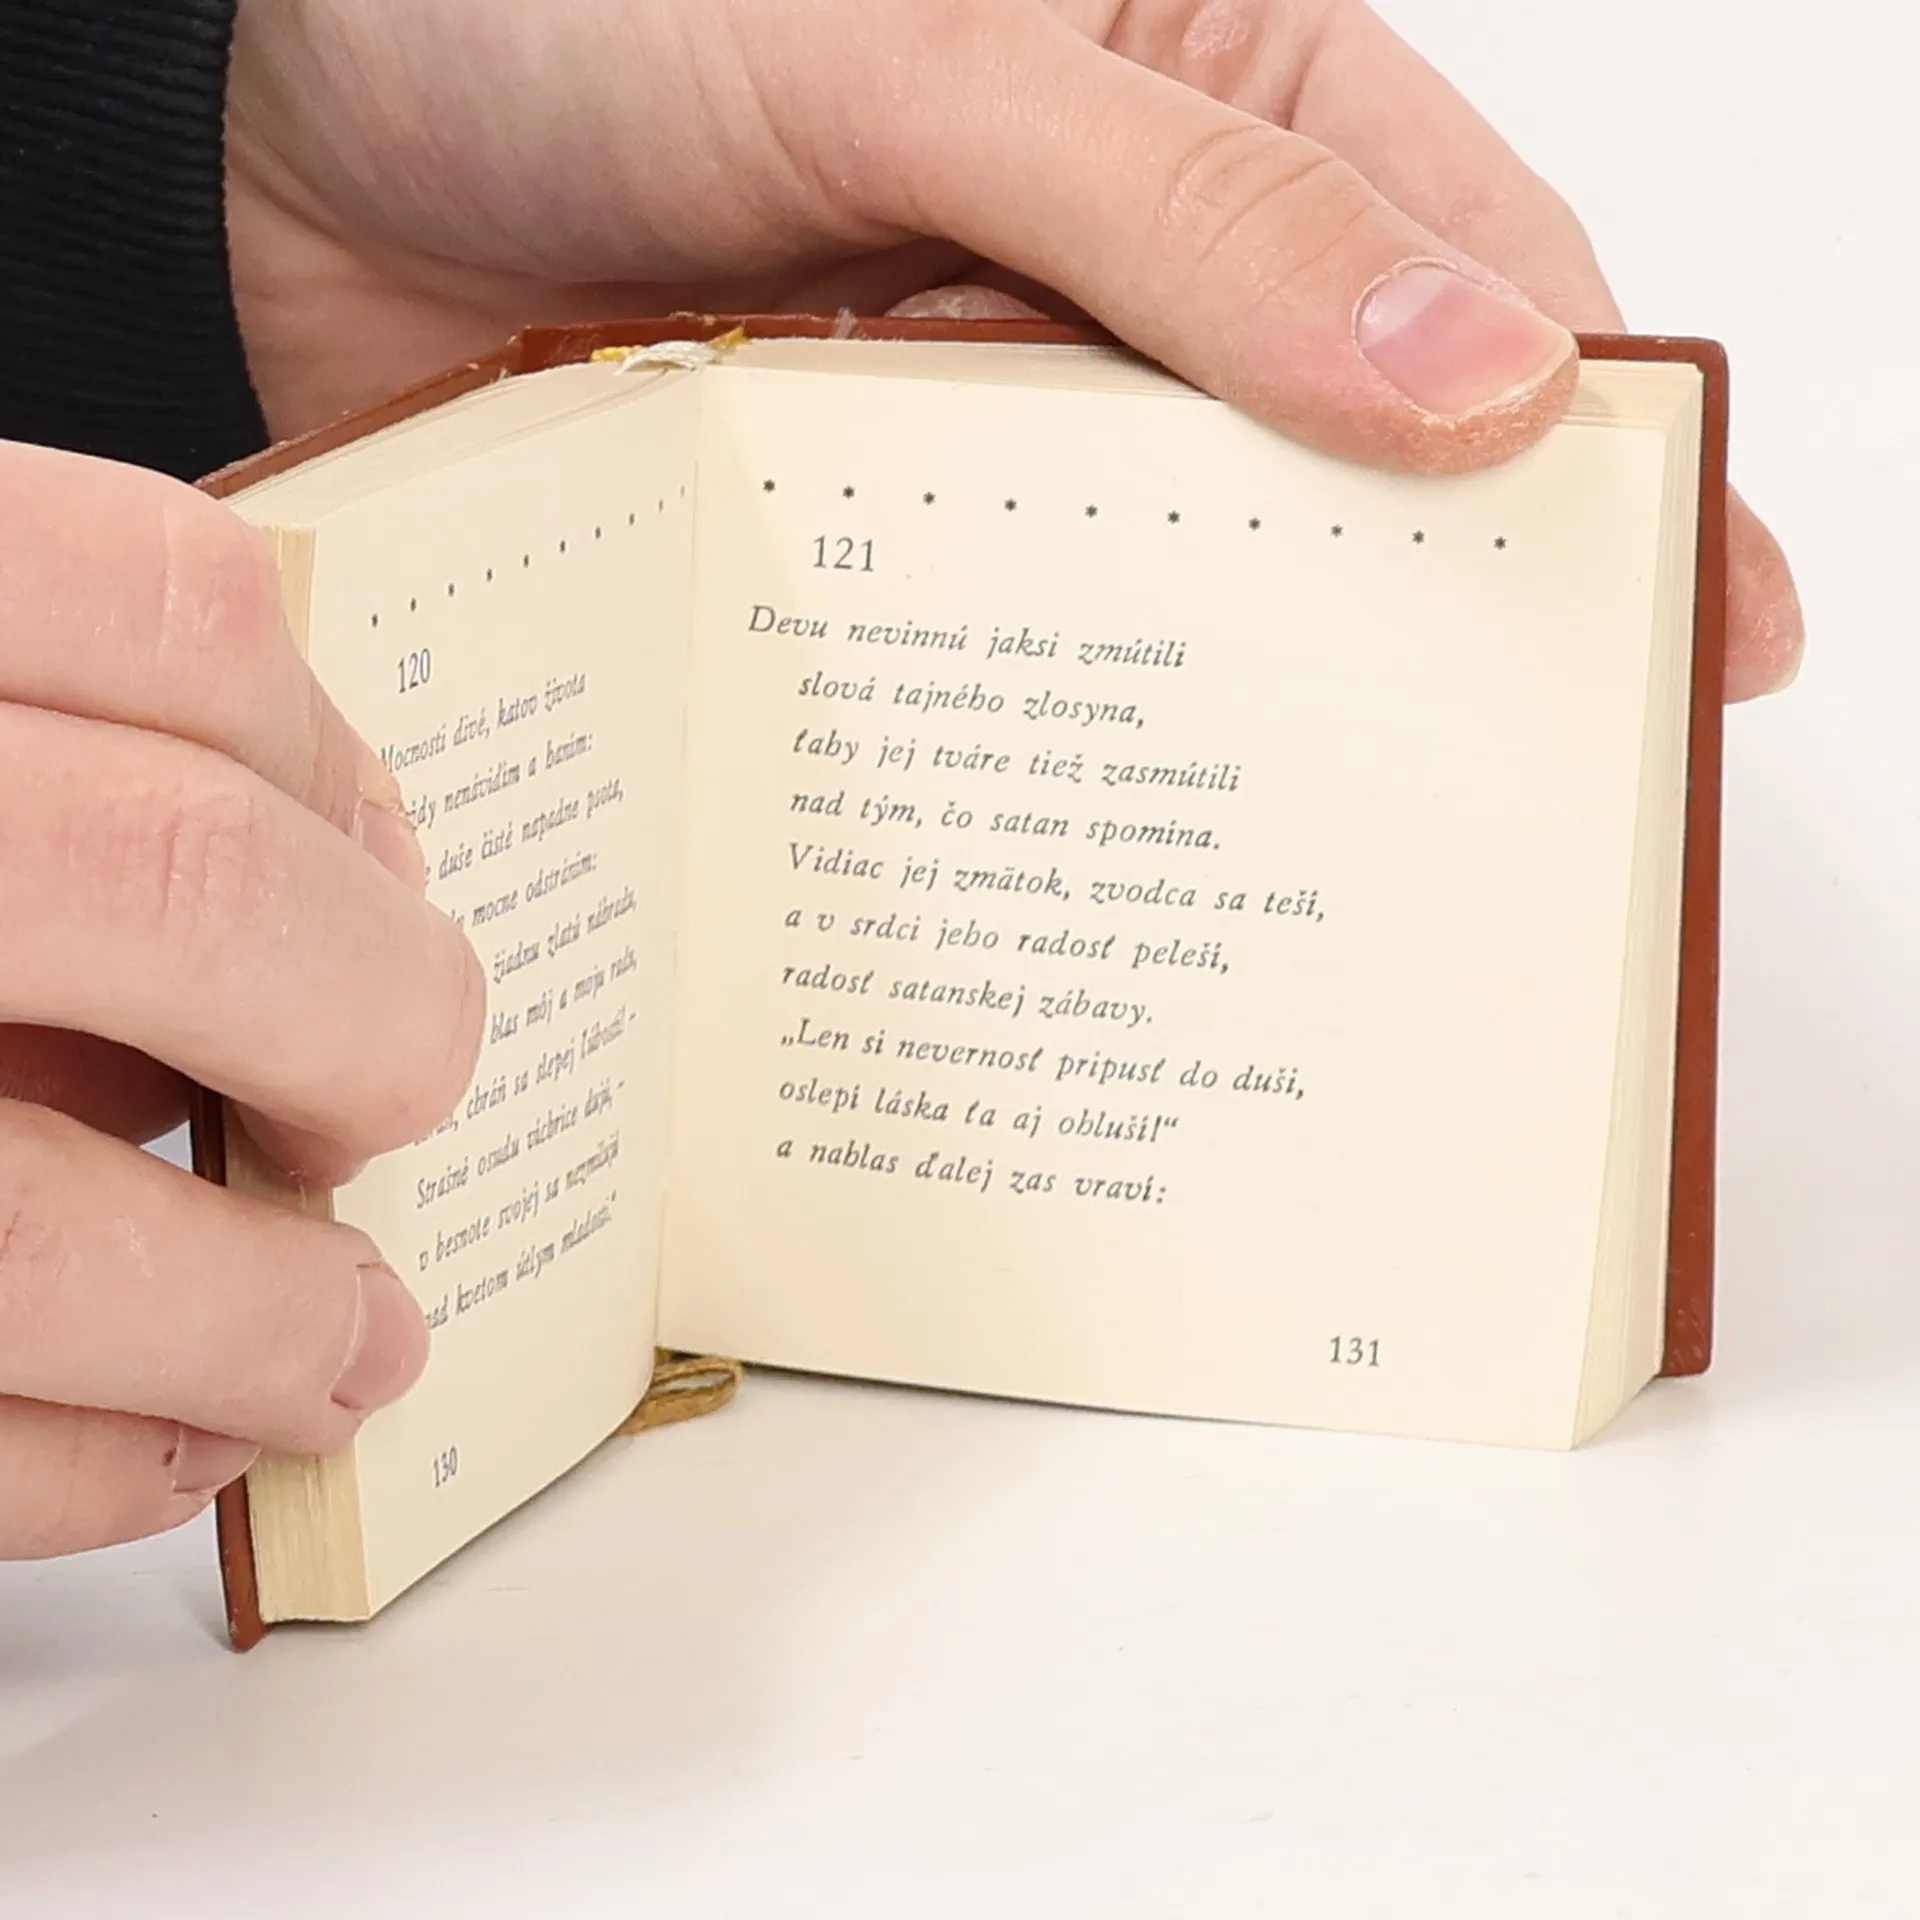 * * * * * * * * * *
120
Mocnosti divé, katov života
nenávidím a haním:
duše čisté napadne psota,
mocne odstráním:
žiadnu zlatú náhradu,
hlas môj a moju radu,
chráň sa slepej ľúbosti! –
Strašné osudu víchrice dujú, –
v besnote svojej sa nezmilujú
nad kvetom útlym mladosti.“
130
* * * * * * * * * *
121
Devu nevinnú jaksi zmútili
slová tajného zlosyna,
ťaby jej tváre tiež zasmútili
nad tým, čo satan spomína.
Vidiac jej zmätok, zvodca sa teší,
a v srdci jeho radosť peleší,
radosť satanskej zábavy.
„Len si nevernosť pripusť do duši,
oslepí láska ťa aj ohluší!“
a nahlas ďalej zas vraví:
131